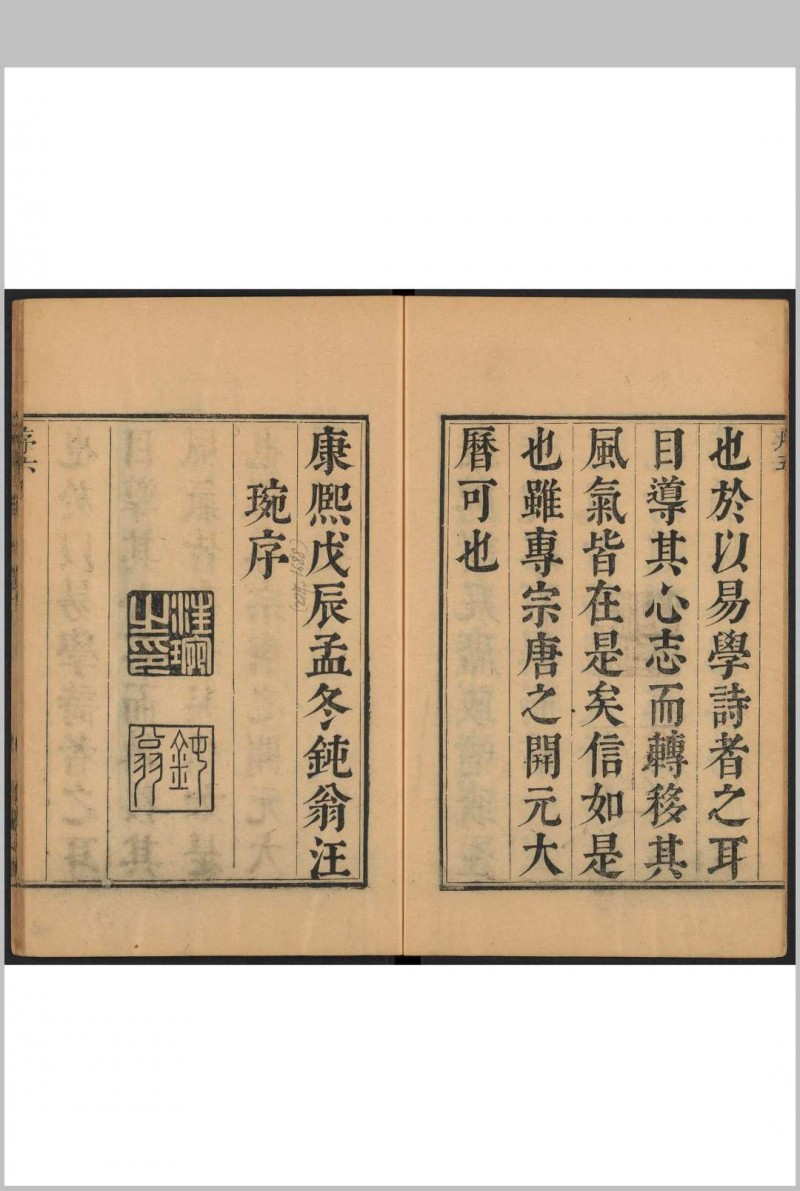 序五
也於以易學詩者之耳
目導其心志而轉移其
風氣皆在是矣信如是
也雖專宗唐之開元大
曆可也
康熙戊辰孟冬鈍翁汪
琬序
汪琬之印
鈍翁
序六